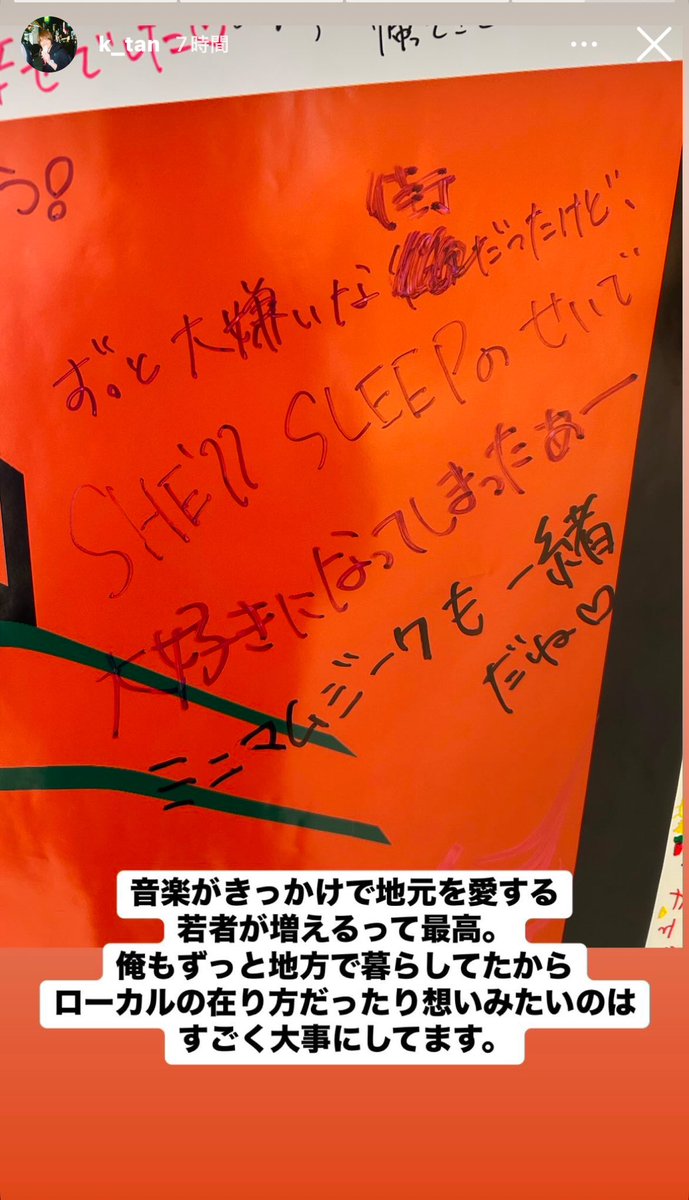 k_tan 7時間
せでした
う!
街
ずっと大嫌いなだったけど、
SHE'll SLEEPのせいで
大好きになってしまったぁー
ミニマムジークも一緒
だね♡
音楽がきっかけで地元を愛する
若者が増えるって最高。
俺もずっと地方で暮らしてたから
ローカルの在り方だったり想いみたいのは
すごく大事にしてます。